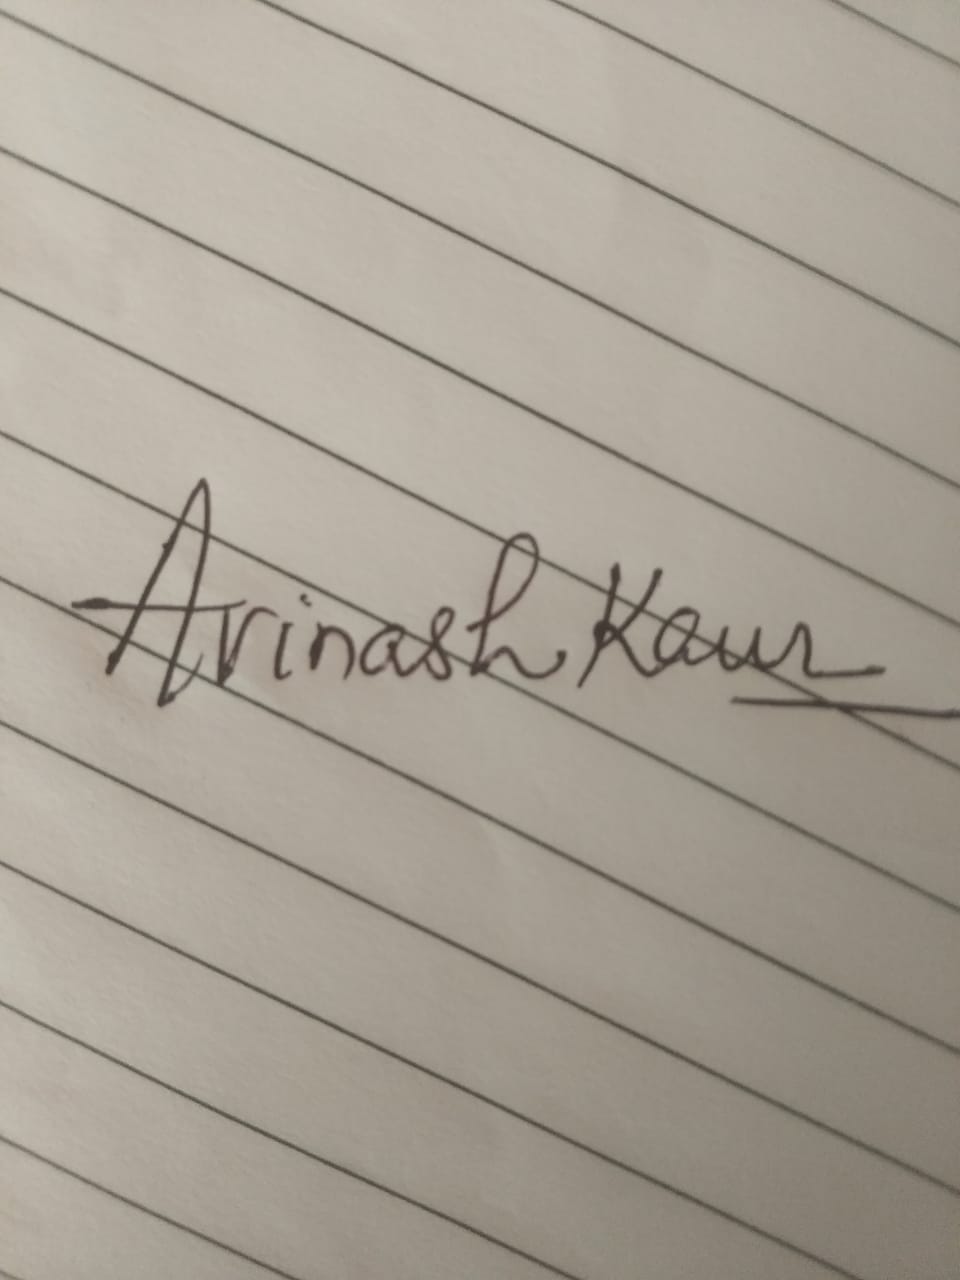 Avinash Kaur